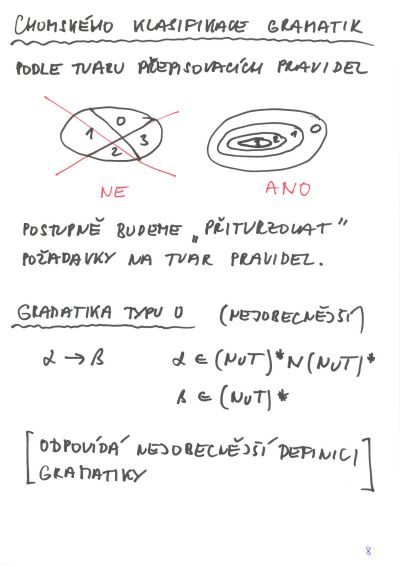 CHOMSKÉHO KLASIFIKACE GRAMATIK
PODLE TVARU PŘEPISOVACÍCH PRAVIDEL
0
1
3
2
0
1
2
3
NE
ANO
POSTUPNĚ BUDEME „PŘITVRZOVAT"
POŽADAVKY NA TVAR PRAVIDEL.
GRAMATIKA TYPU 0 (NEJOBECNĚJŠÍ)
α → β α ∈ (N∪T)* N (N∪T)*
β ∈ (N∪T)*
[ODPOVÍDÁ NEJOBECNĚJŠÍ DEFINICI
GRAMATIKY]
8